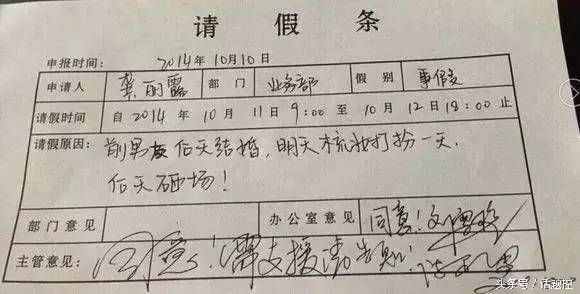 请假条
申报时间： 2014年10月10日
申请人 龚丽露 部门 业务部 假别 事假
请假时间 自2014年10月11日9:00至10月12日18:00止
请假原因： 前男友后天结婚，明天梳妆打扮一天，
后天砸场！
部门意见 办公室意见 同意！
主管意见： 同意！需支援请告知！
头条号／话题团